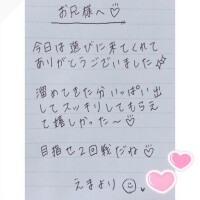 お兄様へ♡
今日は遊びに来てくれて
ありがとうございました☆
溜めてきた分いっぱい出
してスッキリしてもらえ
て嬉しかった〜♡
目指せ2回戦だね♡
えまより☺♥